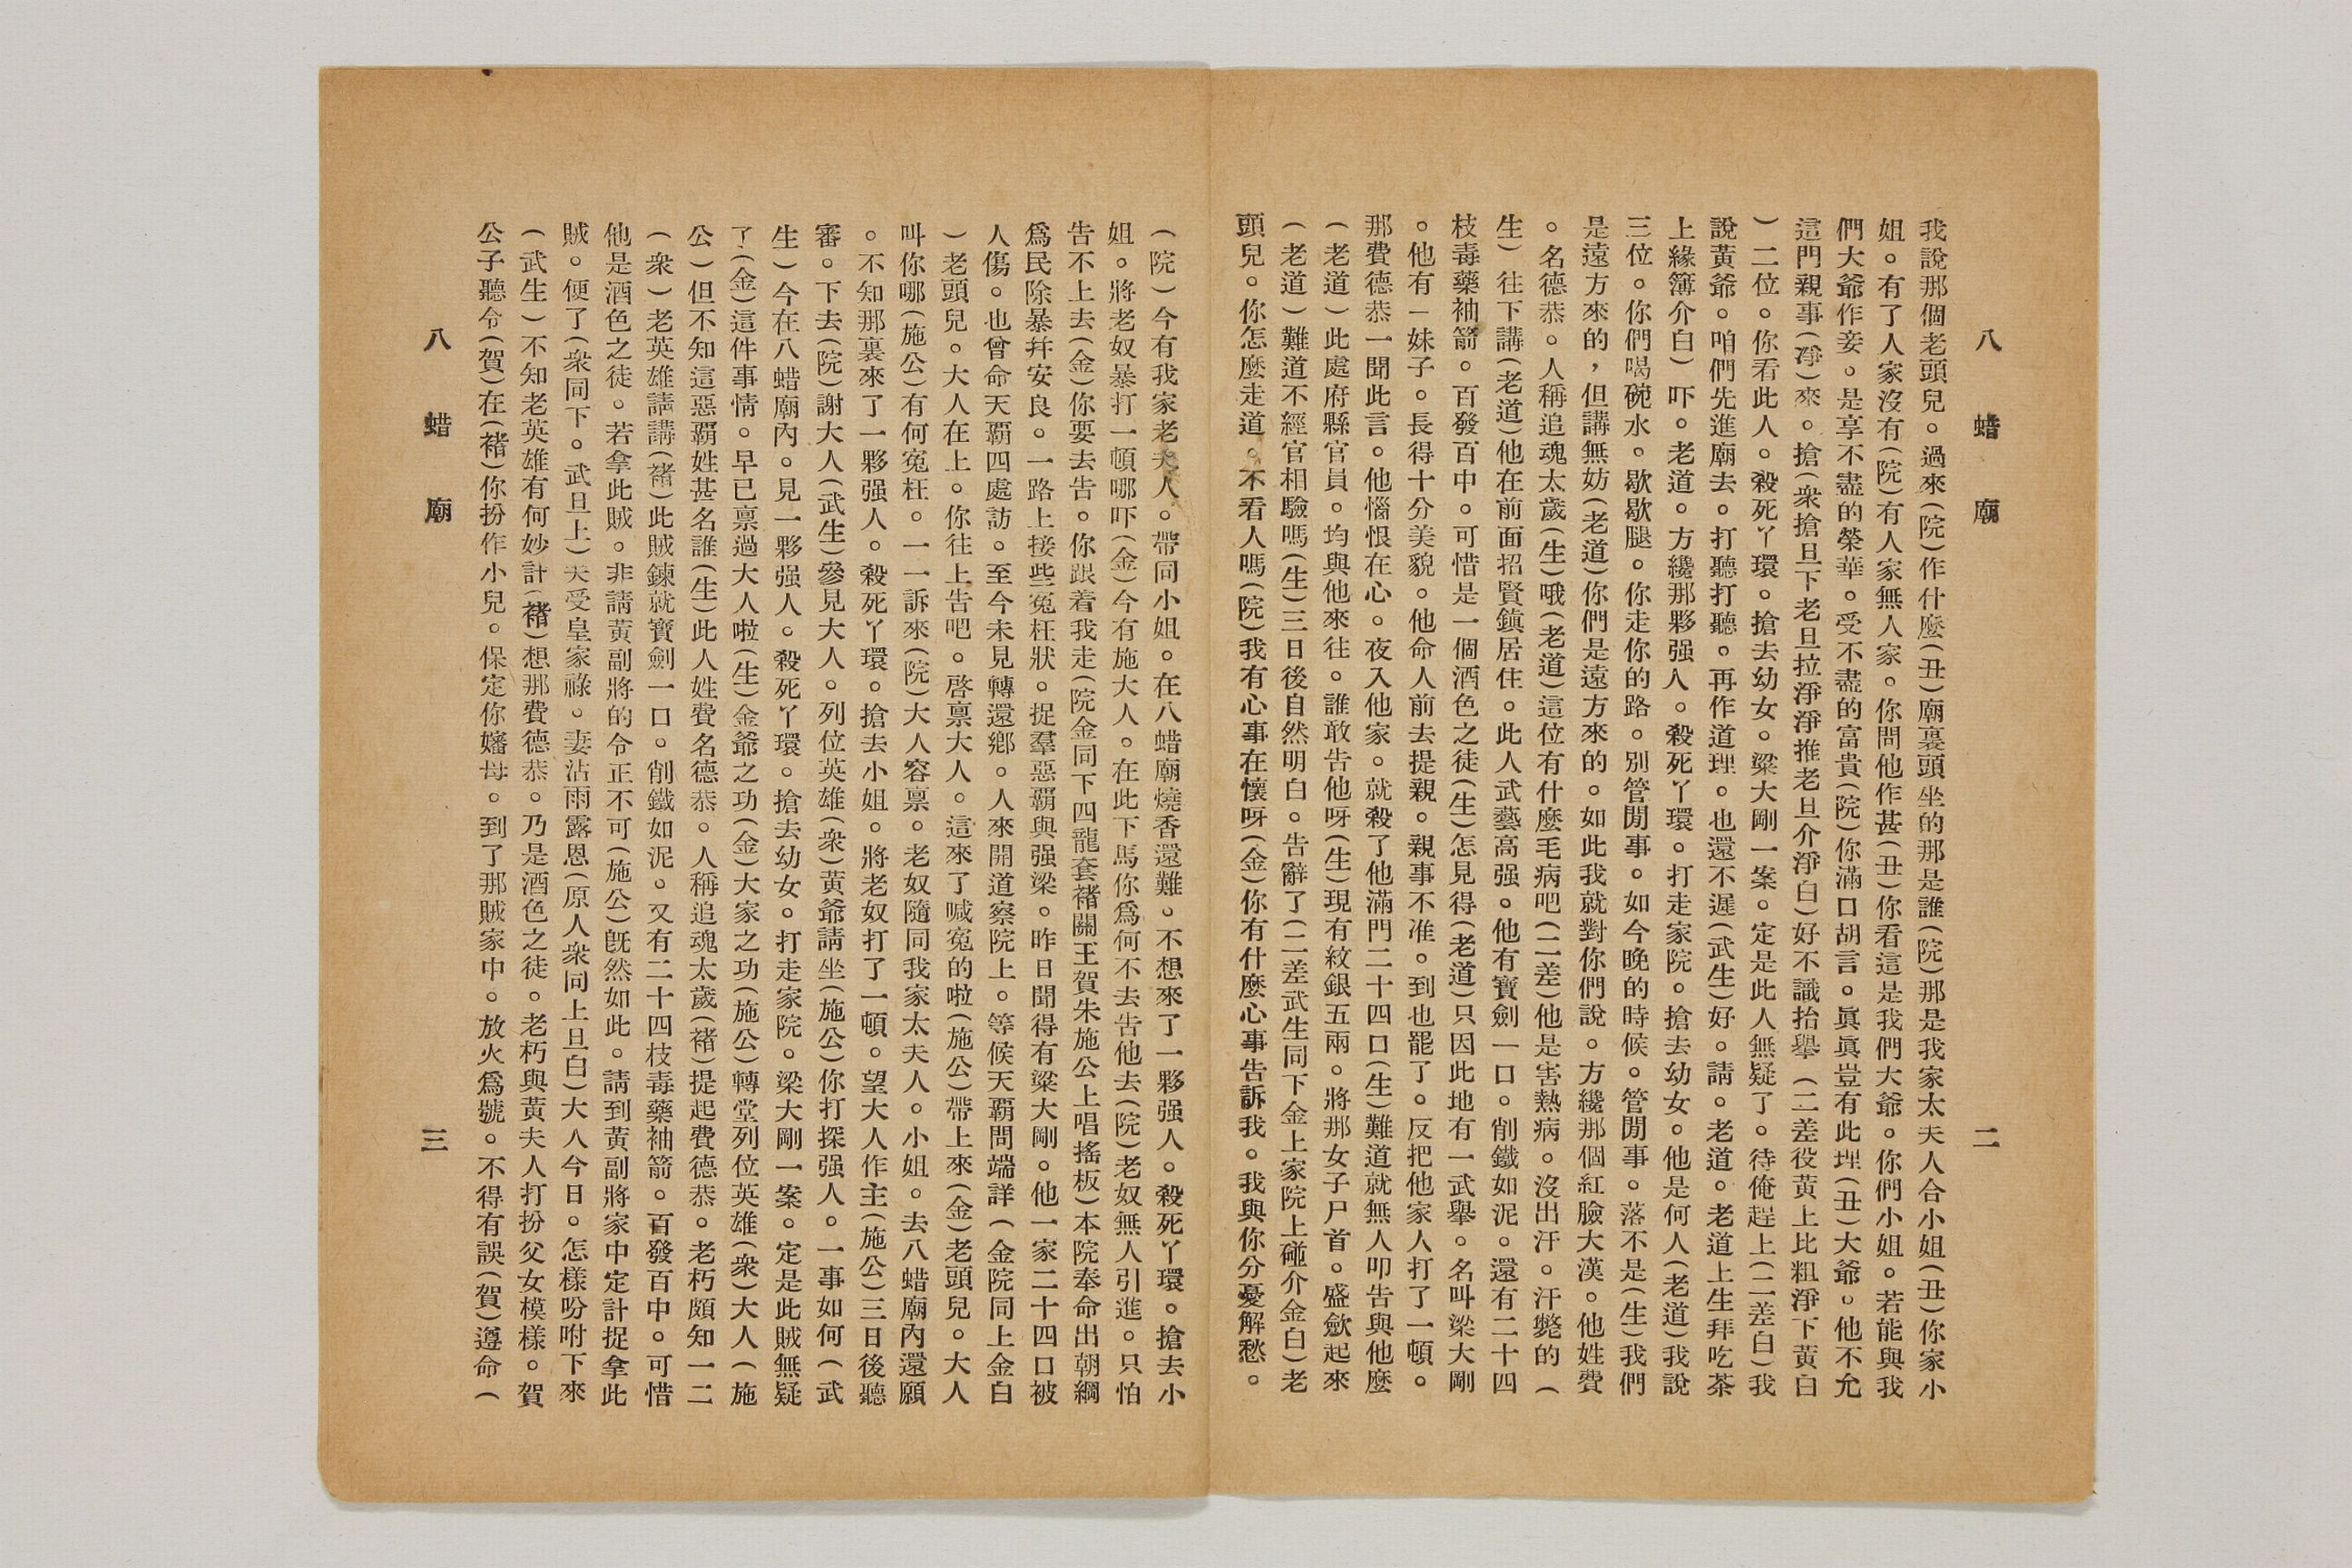 八蜡廟
二
我說那個老頭兒。過來(院)作什麼(丑)廟裏頭坐的那是誰(院)那是我家太夫人合小姐(丑)你家小
姐。有了人家沒有(院)有人家無人家。你問他作甚(丑)你看這是我們大爺。你們小姐。若能與我
們大爺作妾。是享不盡的榮華。受不盡的富貴(院)你滿口胡言。眞眞豈有此埋(丑)大爺。他不允
這門親事(淨)來。搶(衆搶旦下老旦拉淨淨推老旦介淨白)好不識抬舉(二差役黃上比粗淨下黃白
)二位。你看此人。殺死丫環。搶去幼女。梁大剛一案。定是此人無疑了。待俺趕上(二差白)我
說黃爺。咱們先進廟去。打聽打聽。再作道理。也還不遲(武生)好。請。老道。老道上生拜吃茶
上緣簿介白)吓。老道。方纔那夥强人。殺死丫環。打走家院。搶去幼女。他是何人(老道)我說
三位。你們喝碗水。歇歇腿。你走你的路。別管閒事。如今晚的時候。管閒事。落不是(生)我們
是遠方來的，但講無妨(老道)你們是遠方來的。如此我就對你們說。方纔那個紅臉大漢。他姓費
。名德恭。人稱追魂太歲(生)哦(老道)這位有什麼毛病吧(二差)他是害熱病。沒出汗。汗斃的(
生)往下講(老道)他在前面招賢鎮居住。此人武藝高强。他有寶劍一口。削鐵如泥。還有二十四
枝毒藥袖箭。百發百中。可惜是一個酒色之徒(生)怎見得(老道)只因此地有一武舉。名叫梁大剛
。他有一妹子。長得十分美貌。他命人前去提親。親事不准。到也罷了。反把他家人打了一頓。
那費德恭一聞此言。他惱恨在心。夜入他家。就殺了他滿門二十四口(生)難道就無人叩告與他麼
(老道)此處府縣官員。均與他來往。誰敢告他呀(生)現有紋銀五兩。將那女子尸首。盛歛起來
(老道)難道不經官相驗嗎(生)三日後自然明白。告辭了(二差武生同下金上家院上碰介金白)老
頭兒。你怎麼走道。不看人嗎(院)我有心事在懷呀(金)你有什麼心事告訴我。我與你分憂解愁。
(院)今有我家老夫人。帶同小姐。在八蜡廟燒香還難。不想來了一夥强人。殺死丫環。搶去小
姐。將老奴暴打一頓哪吓(金)今有施大人。在此下馬你爲何不去告他去(院)老奴無人引進。只怕
告不上去(金)你要去告。你跟着我走(院金同下四龍套褚關王賀朱施公上唱搖板)本院奉命出朝綱
爲民除暴幷安良。一路上接些冤枉狀。捉羣惡覇與强梁。昨日聞得有梁大剛。他一家二十四口被
人傷。也曾命天覇四處訪。至今未見轉還鄉。人來開道察院上。等候天覇問端詳(金院同上金白
)老頭兒。大人在上。你往上告吧。啓禀大人。這來了喊冤的啦(施公)帶上來(金)老頭兒。大人
叫你哪(施公)有何冤枉。一一訴來(院)大人容禀。老奴隨同我家太夫人。小姐。去八蜡廟內還願
。不知那裏來了一夥强人。殺死丫環。搶去小姐。將老奴打了一頓。望大人作主(施公)三日後聽
審。下去(院)謝大人(武生)參見大人。列位英雄(衆)黃爺請坐(施公)你打探强人。一事如何(武
生)今在八蜡廟內。見一夥强人。殺死丫環。搶去幼女。打走家院。梁大剛一案。定是此賊無疑
了(金)這件事情。早已禀過大人啦(生)金爺之功(金)大家之功(施公)轉堂列位英雄(衆)大人(施
公)但不知這惡覇姓甚名誰(生)此人姓費名德恭。人稱追魂太歲(褚)提起費德恭。老朽頗知一二
(衆)老英雄請講(褚)此賊鍊就寶劍一口。削鐵如泥。又有二十四枝毒藥袖箭。百發百中。可惜
他是酒色之徒。若拿此賊。非請黃副將的令正不可(施公)旣然如此。請到黃副將家中定計捉拿此
賊。便了(衆同下。武旦上)夫受皇家祿。妻沾雨露恩(原人衆同上旦白)大人今日。怎樣吩咐下來
(武生)不知老英雄有何妙計(褚)想那費德恭。乃是酒色之徒。老朽與黃夫人打扮父女模樣。賀
公子聽令(賀)在(褚)你扮作小兒。保定你嬸母。到了那賊家中。放火爲號。不得有誤(賀)遵命(
八蜡廟
三